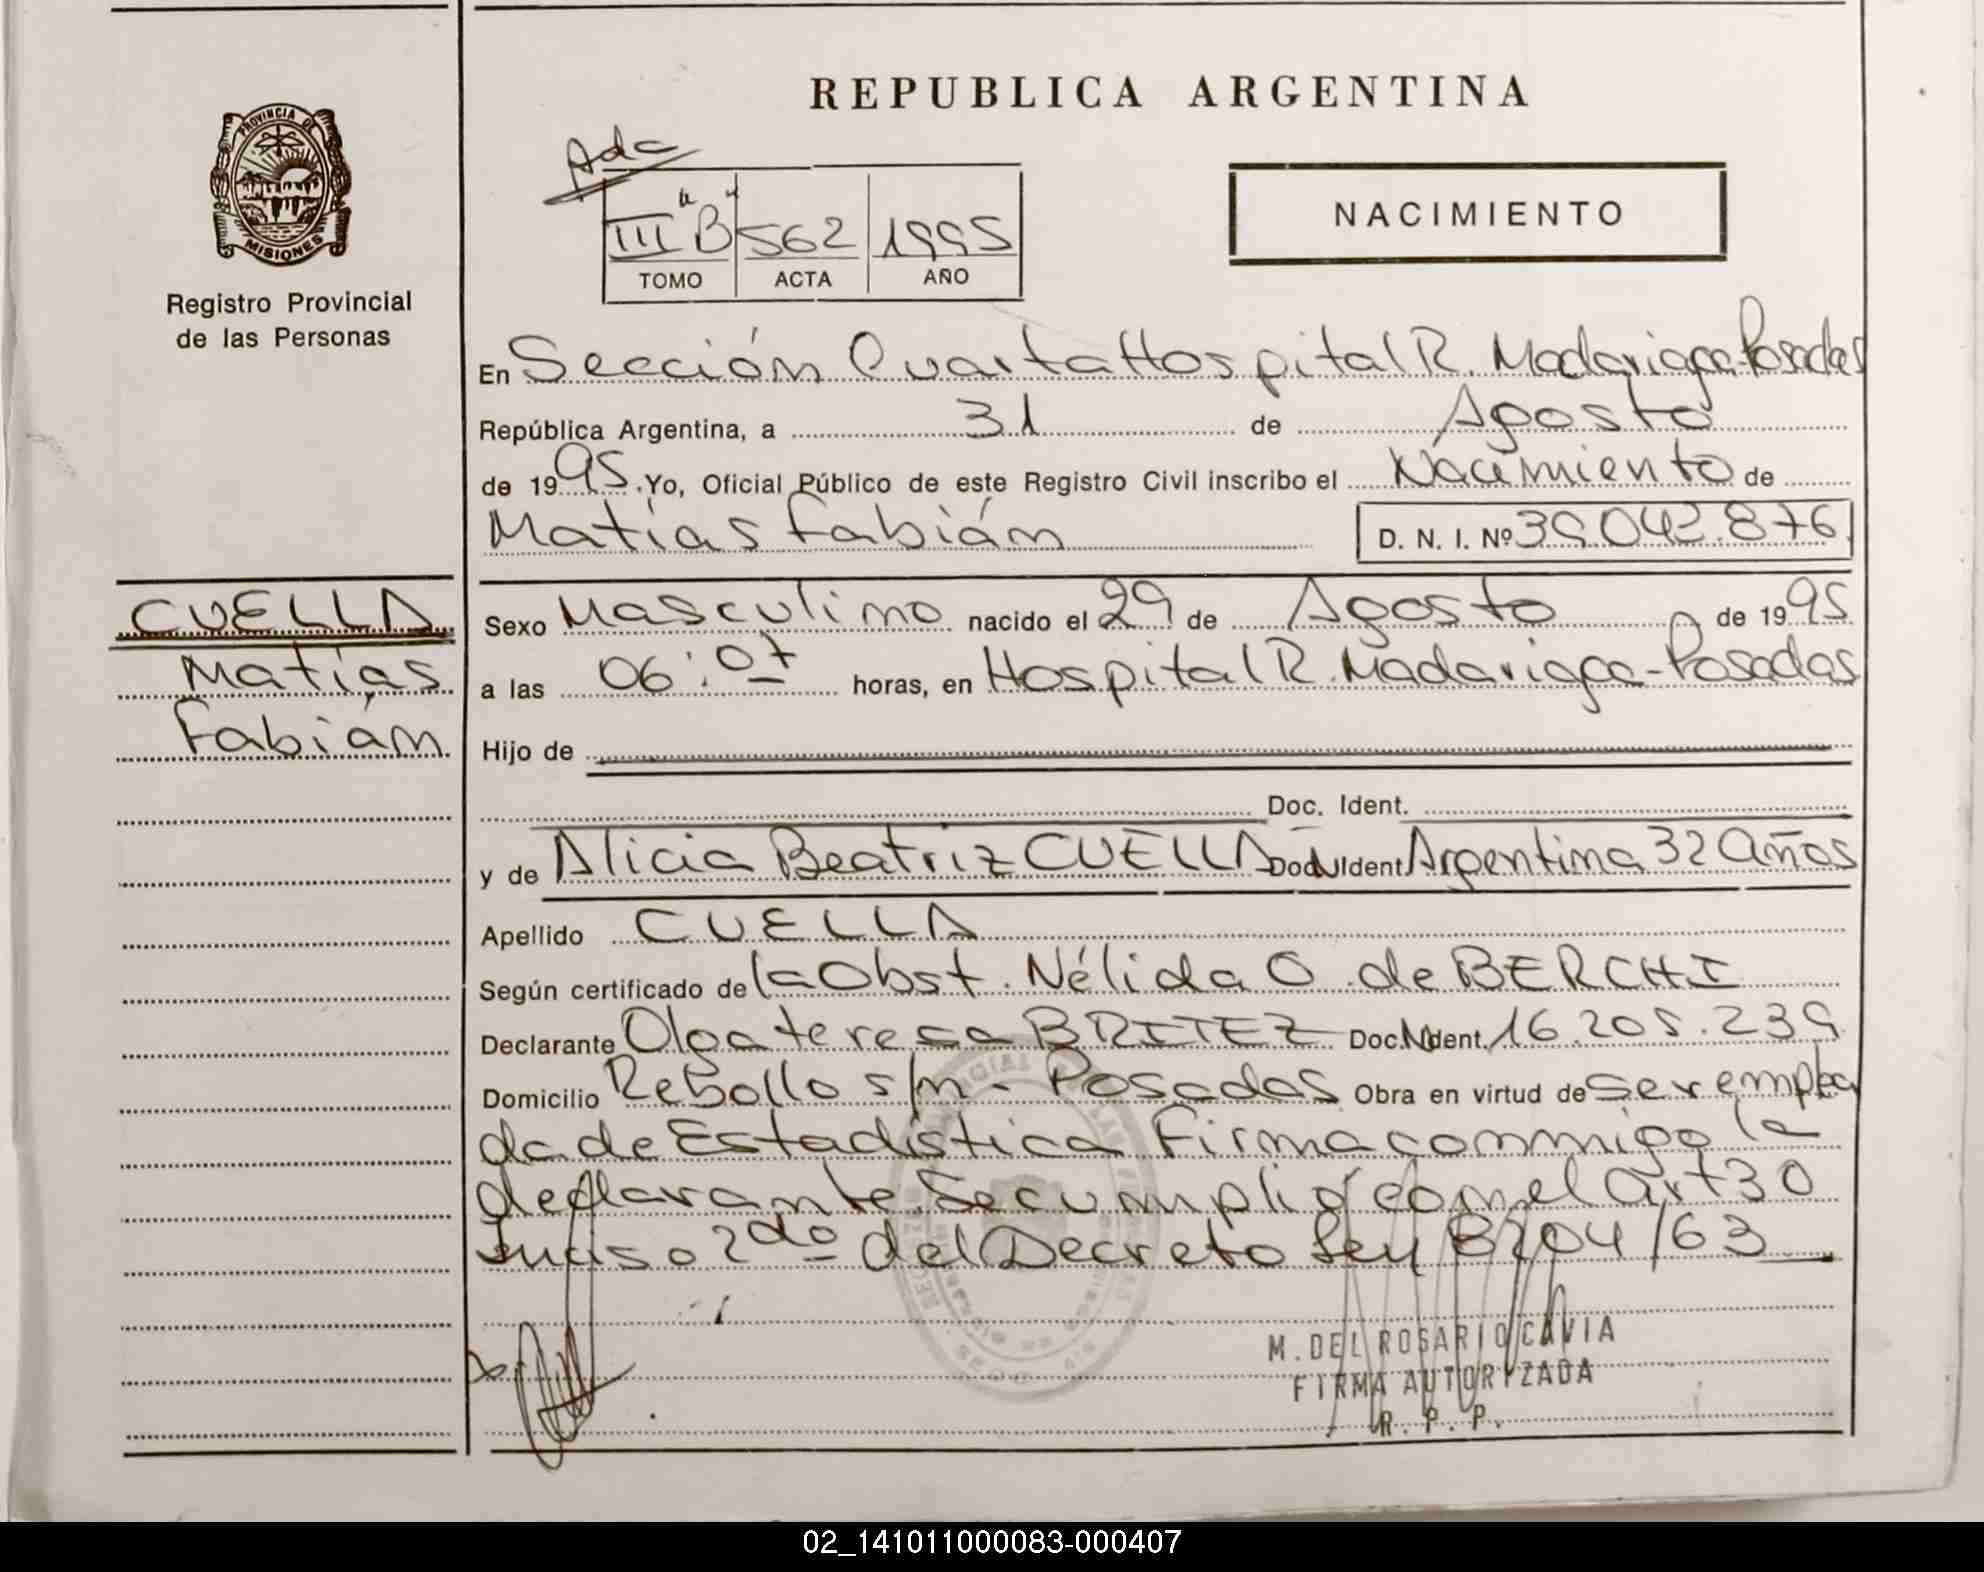 REPUBLICA ARGENTINA
PROVINCIA DE
MISIONES
Registro Provincial
de las Personas
Adc
III "B" 562 1995
TOMO ACTA AÑO
NACIMIENTO
En Sección Cuarta Hospital R. Madariaga-Posadas
República Argentina, a 31 de Agosto
de 1995. Yo, Oficial Público de este Registro Civil inscribo el Nacimiento de
Matías Fabián D. N. I. Nº 39.042.876
CUELLA
Matías
Fabián
Sexo Masculino nacido el 29 de Agosto de 1995
a las 06:07 horas, en Hospital R. Madariaga-Posadas
Hijo de
Doc. Ident.
y de Alicia Beatriz CUELLA Doc. Ident Argentina 32 Años
Apellido CUELLA
Según certificado de la Obst. Nélida O. de BERCHI
Declarante Olga teresa BRITEZ Doc. Ident. 16.205.239
Domicilio Rebollo s/n - Posadas Obra en virtud de ser emplea
da de Estadística Firma conmigo la
declarante Se cumplió con el Art 30
Inciso 2do del Decreto Ley 8204/63
M. DEL ROSARIO CAVIA
FIRMA AUTORIZADA
R. P. P.
02_141011000083-000407